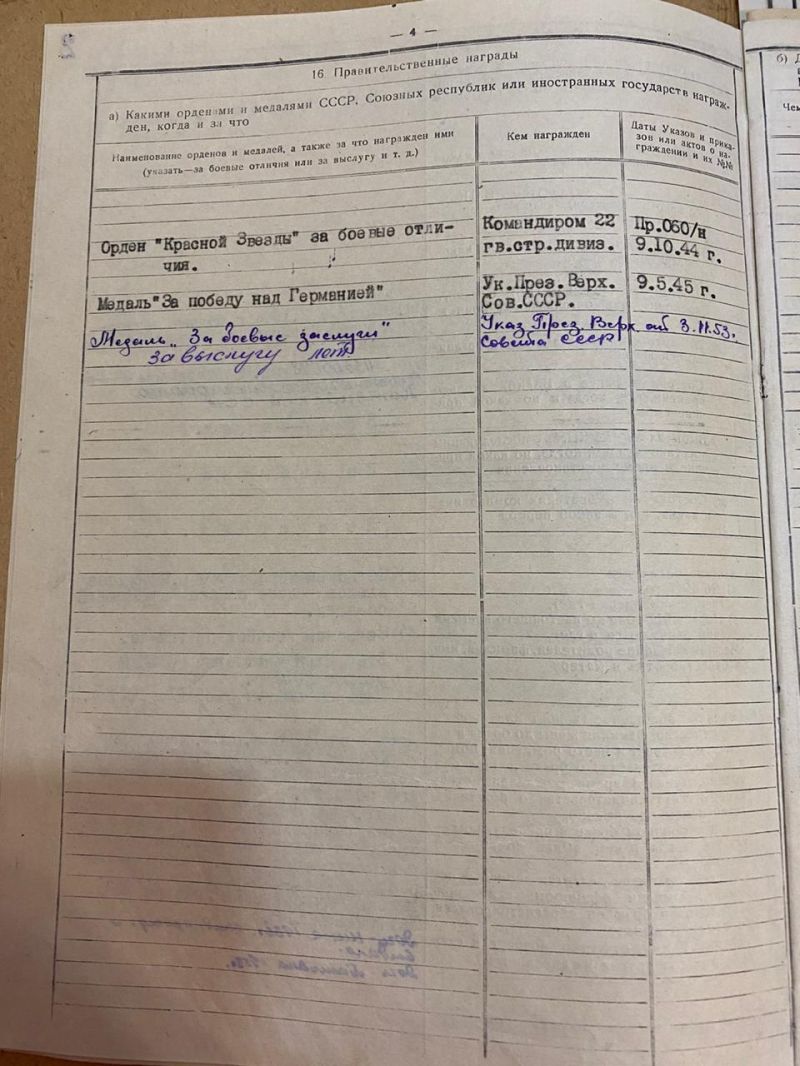 — 4 —
16. Правительственные награды
а) Какими орденами и медалями СССР, Союзных республик или иностранных государств награж-
ден, когда и за что
Наименование орденов и медалей, а также за что награжден ими
(указать—за боевые отличия или за выслугу и т. д.)
Кем награжден
Даты Указов и прика-
зов или актов о на-
граждении и их №№
Орден "Красной Звезды" за боевые отли-
чия.
Командиром 22
гв.стр.дивиз.
Пр.060/н
9.10.44 г.
Медаль"За победу над Германией"
Ук.През.Верх.
Сов.СССР.
9.5.45 г.
Медаль „За боевые заслуги"
за выслугу лет
Указ През. Верх от 3.11.53.
Совета СССР
б) Д
Чем